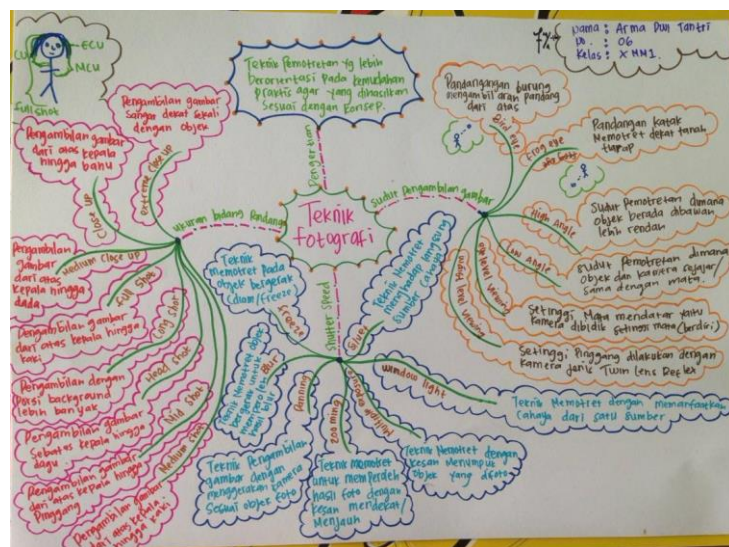 Nama : Arma Dun Tantri
No. : 06
Kelas : X MM1.
CU
ECU
MCU
Full Shot
Teknik fotografi
Pengertian
Teknik Pemotretan yg lebih
berorientasi pada kemudahan
praktis agar yang dihasilkan
Sesuai dengan Konsep.
ukuran bidang Pandang
Extreme Close up
Pengambilan gambar
sangat dekat sekali
dengan objek
Close up
Pengambilan gambar
dari atas kepala
hingga bahu
Medium Close up
Pengambilan
gambar
dari atas
kepala hingga
dada.
Full Shot
Pengambilan gambar
dari atas kepala hingga
kaki
Long shot
Pengambilan dengan
Porsi background
lebih banyak
Head shot
Pengambilan gambar
Sebatas kepala hingga
dagu.
Mid shot
Pengambilan gambar
dari atas kepala hingga
Pinggang
Medium shot
Pengambilan gambar
dari atas kepala
hingga kaki
sudut Pengambilan gambar
Bird eye
Pandangangan burung
mengambil arah pandang
dari atas
Frog eye
Pandangan katak
Memotret dekat tanah
tiarap
High Angle
Sudut Pemotretan dimana
Objek berada dibawah
lebih rendah
Low Angle
sudut Pemotretan dimana
Objek dan kamera sejajar/
sama dengan mata.
Viewing
Setinggi Mata mendatar yaitu
Kamera dibidik setinggi mata (berdiri)
Waist level Viewing
Setinggi Pinggang dilakukan dengan
Kamera Jenis Twin Lens Reflex
Shutter Speed
Freeze
Teknik
memotret Pada
objek bergerak
(diam/freeze)
Blur
Teknik Memotret objek
bergerak untuk
memperoleh
hasil blur
Panning
Teknik Pengambilan
gambar dengan
menggerakan kamera
Sesuai objek foto
zooming
Teknik memotret
untuk memperoleh
hasil foto dengan
kesan mendekat/
Menjauh
Multiple exposure
Teknik Memotret dengan
kesan Menumpuk
Objek yang difoto
window light
Teknik Memotret dengan memanfaatkan
Cahaya dari satu sumber
Teknik Memotret
menghadap langsung
Sumber cahaya